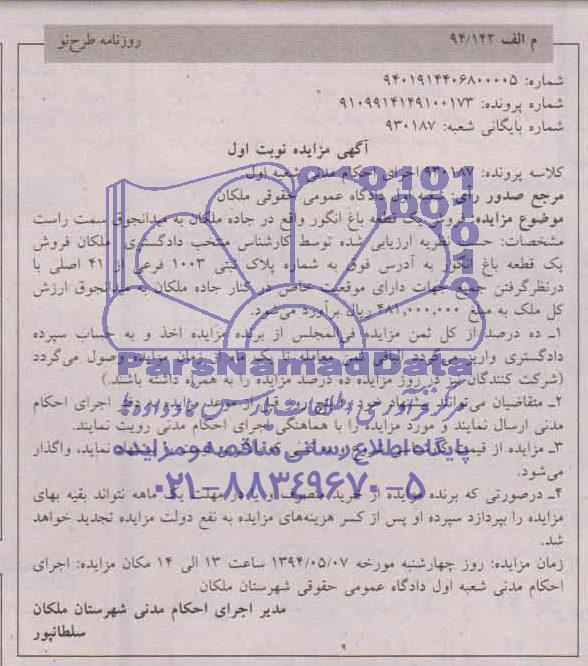 م الف ۹۴/۱۴۲
روزنامه طرح‌نو
شماره: ۹۴۰۱۹۱۴۴۰۶۸۰۰۰۰۵
شماره پرونده: ۹۱۰۹۹۱۴۱۴۹۱۰۰۱۷۳
شماره بایگانی شعبه: ۹۳۰۱۸۷
آگهی مزایده نوبت اول
کلاسه پرونده: ۹۳۰۱۸۷ اجرای احکام مدنی شعبه اول
مرجع صدور رای: شعبه اول دادگاه عمومی حقوقی ملکان
موضوع مزایده: فروش یک قطعه باغ انگور واقع در جاده ملکان به میدانجوق سمت راست
مشخصات: حسب نظریه ارزیابی شده توسط کارشناس منتخب دادگستری ملکان فروش
یک قطعه باغ انگور به آدرس فوق به شماره پلاک ثبتی ۱۰۰۳ فرعی از ۴۱ اصلی با
درنظرگرفتن جمیع جهات دارای موقعیت خاص در کنار جاده ملکان به میدانجوق ارزش
کل ملک به مبلغ ۴۸۱,۰۰۰,۰۰۰ ریال برآورد می‌شود.
۱ـ ده درصد از کل ثمن مزایده فی‌المجلس از برنده مزایده اخذ و به حساب سپرده
دادگستری واریز می‌گردد الباقی ثمن معامله تا یک ماه از زمان مزایده وصول می‌گردد
(شرکت کنندگان نیز در روز مزایده ده درصد مزایده را به همراه داشته باشند.)
۲ـ متقاضیان می‌توانند پیشنهاد خود را پنج روز قبل از موعد مزایده به دفتر اجرای احکام
مدنی ارسال نمایند و مورد مزایده را با هماهنگی اجرای احکام مدنی رویت نمایند.
۳ـ مزایده از قیمت نماید، واگذار
می‌شود.
۴ـ درصورتی که برنده مزایده از خرید منصرف و یا در مهلت یک ماهه نتواند بقیه بهای
مزایده را بپردازد سپرده او پس از کسر هزینه‌های مزایده به نفع دولت مزایده تجدید خواهد
شد.
زمان مزایده: روز چهارشنبه مورخه ۱۳۹۴/۰۵/۰۷ ساعت ۱۳ الی ۱۴ مکان مزایده: اجرای
احکام مدنی شعبه اول دادگاه عمومی حقوقی شهرستان ملکان
مدیر اجرای احکام مدنی شهرستان ملکان
سلطانپور
ParsNamadData
مرکز فرآوری اطلاعات پارس نماد داده‌ها
پایگاه اطلاع رسانی مناقصه و مزایده
۰۲۱-۸۸۳۴۹۶۷۰-۵